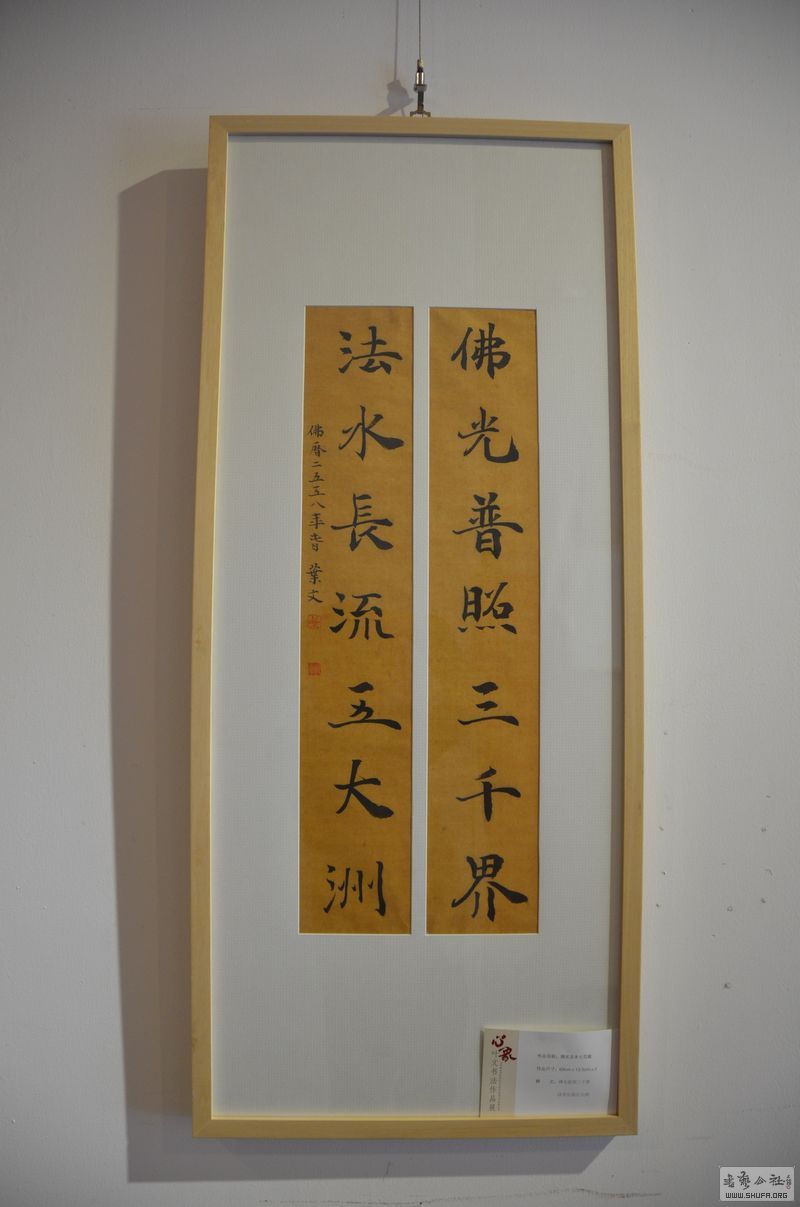 佛光普照三千界
法水長流五大洲
佛曆二五五八年春 葉文
心象
叶文书法作品展
WWW.SHUFA.ORG